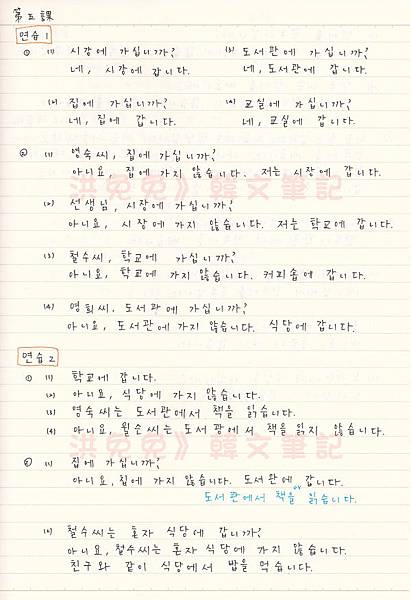 第五課
연습 1
① (1) 시장에 가십니까? (3) 도서관에 가십니까?
네, 시장에 갑니다. 네, 도서관에 갑니다.
(2) 집에 가십니까? (4) 교실에 가십니까?
네, 집에 갑니다. 네, 교실에 갑니다.
② (1) 영숙씨, 집에 가십니까?
아니요, 집에 가지 않습니다. 저는 시장에 갑니다.
洪兔兔》韓文筆記
(2) 선생님, 시장에 가십니까?
아니요, 시장에 가지 않습니다. 저는 학교에 갑니다.
(3) 철수씨, 학교에 가십니까?
아니요, 학교에 가지 않습니다. 커피숍에 갑니다.
(4) 영희씨, 도서관에 가십니까?
아니요, 도서관에 가지 않습니다. 식당에 갑니다.
연습 2
① (1) 학교에 갑니다.
(2) 아니요, 식당에 가지 않습니다.
(3) 영숙씨는 도서관에서 책을 읽습니다.
(4) 아니요, 윌슨씨는 도서관에서 책을 읽지 않습니다.
洪兔兔》韓文筆記
② (1) 집에 가십니까?
아니요, 집에 가지 않습니다. 도서관에 갑니다.
or
도서관에서 책을 읽습니다.
(2) 철수씨는 혼자 식당에 갑니까?
아니요, 철수씨는 혼자 식당에 가지 않습니다.
친구와 같이 식당에서 밥을 먹습니다.